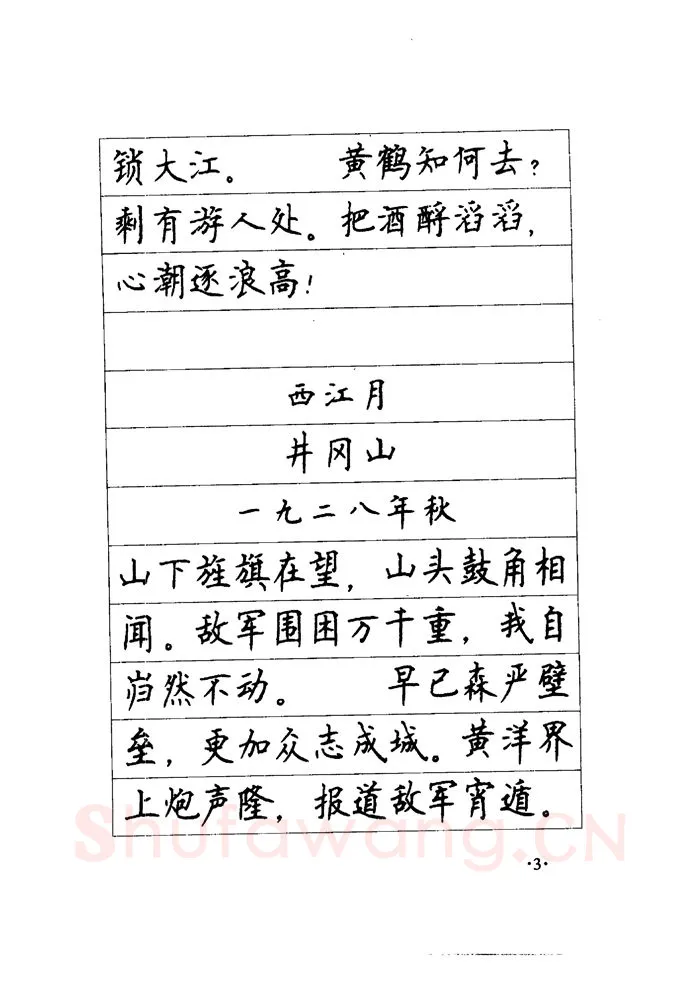 锁大江。 黄鹤知何去?
剩有游人处。把酒酹滔滔,
心潮逐浪高!
西江月
井冈山
一九二八年秋
山下旌旗在望,山头鼓角相
闻。敌军围困万千重,我自
岿然不动。 早已森严壁
垒,更加众志成城。黄洋界
上炮声隆,报道敌军宵遁。
Shufawang.CN
·3·